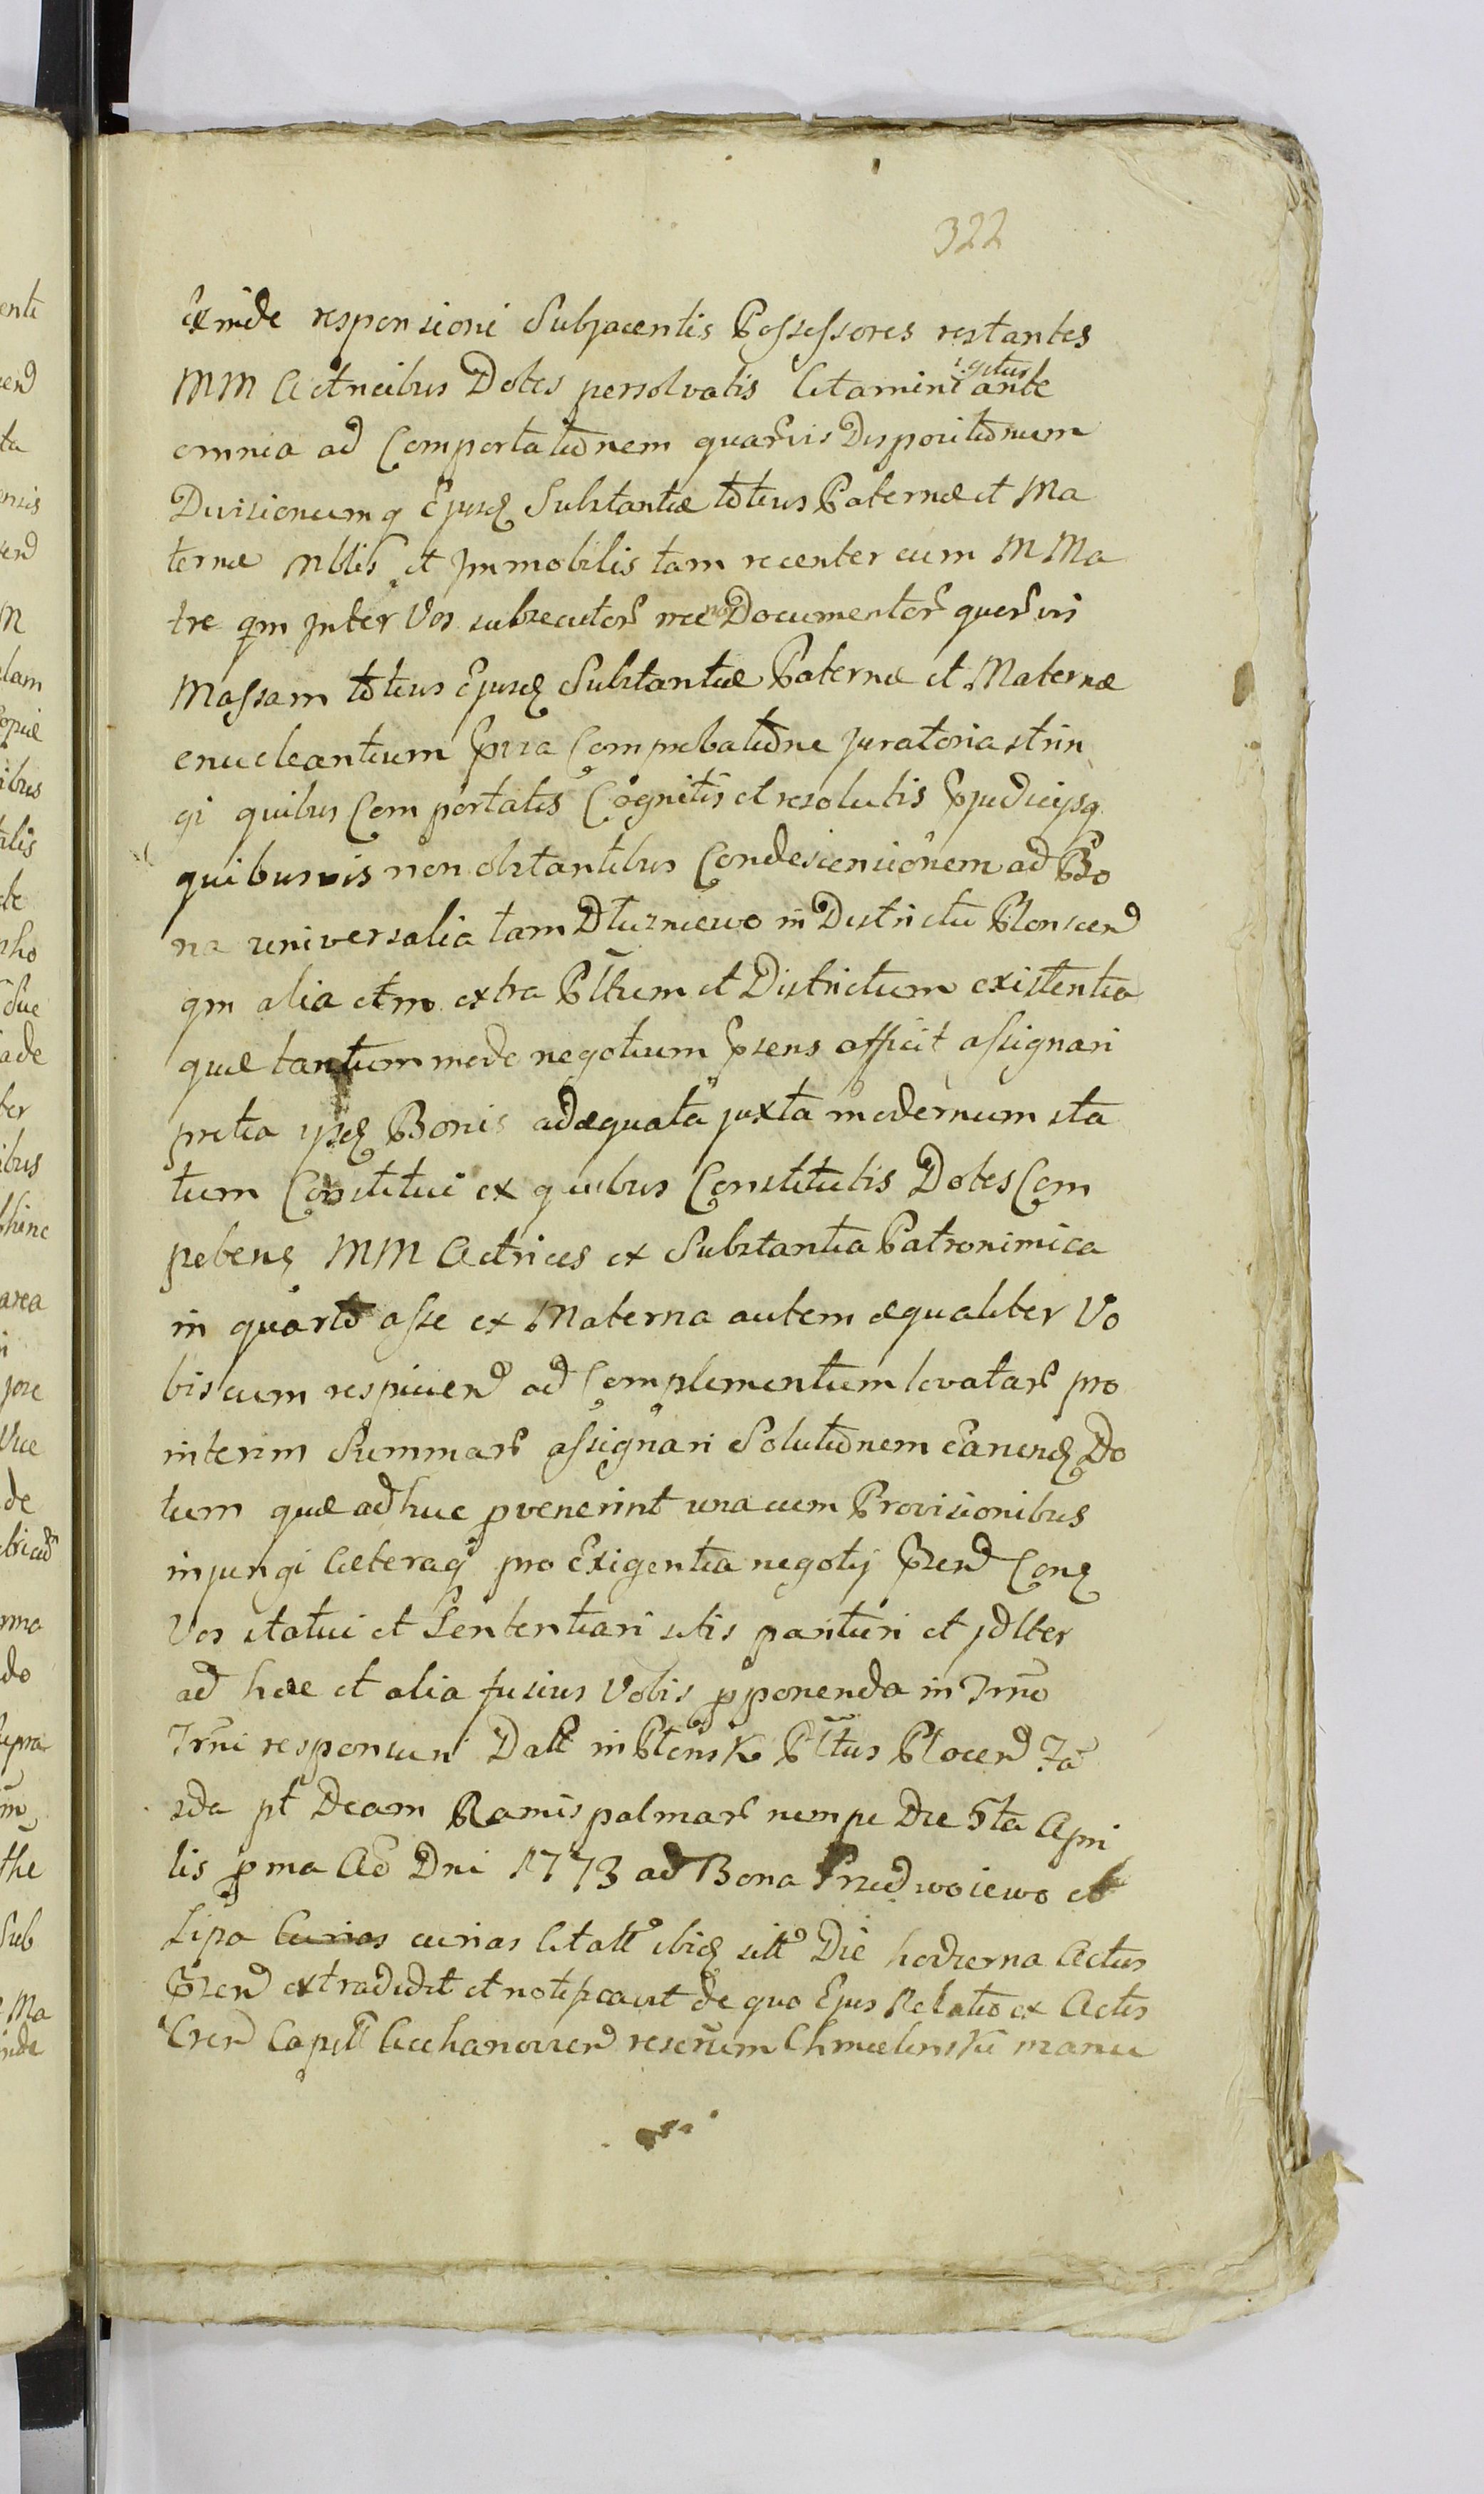 322
Exinde responsioni Subjacentis Possessores restantes
MM Actricibus Dotes persolvatis Citamini igitur ante
omnia ad Comportationem quarvis Dispositionum
Divisionumq Ejusd Substantiæ totius Paternæ et Ma
ternæ Mblis et Immobilis tam recenter cum M Ma
tre qm Inter Vos subsecutor nec non Documentor quorvis
Massam totius Ejusd Substantiæ Paternæ et Maternæ
enucleantium sua Comprobatione Juratoria strin
gi quibus Comportatis Cognitis et resolutis
quibusvis non obstantibus Condescensionem ad Bo
na universalia tam Dłużniewo in Districtu Plonscen
qm alia etm extra Pttum et Districtum existentia
quæ tantummodo negotium psens afficit assignari
pretia ipsd Bonis adæquata juxta modernum sta
tum Constitui ex quibus Constitutis Dotes Com
peten MM Actrices ex Substantia Patronimica
in quarto asse ex Materna autem æqualiter Vo
biscum respicien ad Complementum levatar pro
interim Summar assignari Solutionem earund Do
tum quæ adhuc pvenerint una cum Provisionibus
injungi Cæteraq pro Exigentia negotij psen Con
Vos statui et Sententiari sitis parituri et Jdlter
ad hæc et alia fusius Vobis pponenda in Trno
Trni responsuri Datt in Płonsk Pttus Plocen Fa
sda pt Dcam Ramispalmar nempe Die 5ta Apri
lis pma Ao Dni 1773 ad Bona Przedwoiewo et
Lipa Curias curias Citatt ibid sitt Die hodierna Actus
psen extradidit et notificavit de quo Ejus Relatio ex Actis
Cren Capitt Ciechanovien reserum Chmielinski manu